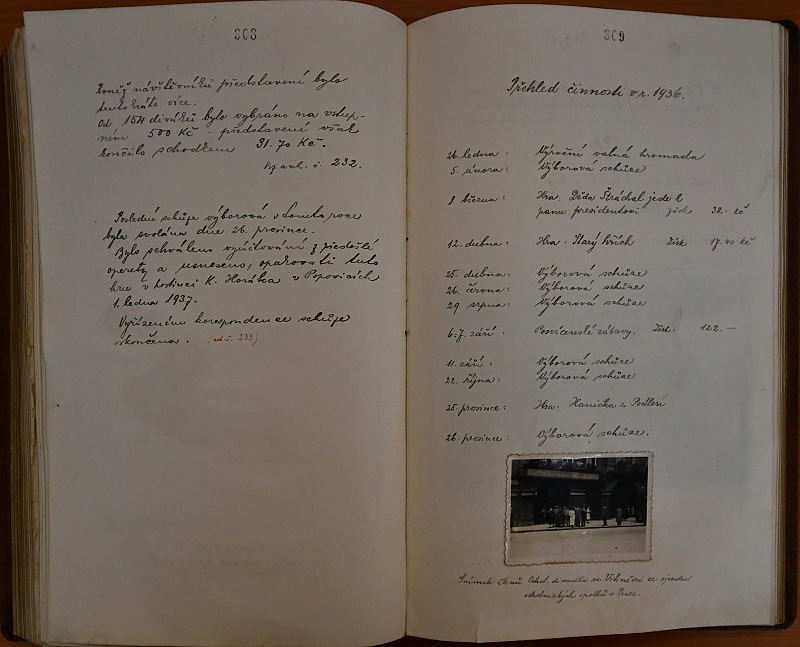 308
Roněž návštěvníků představení bylo
tentokráte více.
Od 154 diváků bylo vybráno na vstup-
ném 500 Kč – představení však
končilo schodkem 31.70 Kč.
Viz arch. č. 232.
Poslední schůze výborová v tomto roce
byla svolána dne 26. prosince.
Bylo schváleno vyúčtování z předešlé
operety a usneseno, opakovati tuto
hru v hostinci K. Horáka v Popovicích
1. ledna 1937.
Vyřízením korespondence schůze
skončena. (arch. č. 233)
309
Přehled činnosti v r. 1936.
26. ledna: Výroční valná hromada
5. února: Výborová schůze
8 března: Hra: Děda Štráchal jede k
panu presidentovi zisk 38.– Kč
12. dubna: Hra: Starý hřích Zisk 17.40 Kč
25. dubna: Výborová schůze
26. června: Výborová schůze
29. srpna: Výborová schůze
6-7. září. Posvícenské zábavy. Zisk. 122.–
11. září: Výborová schůze
22. října: Výborová schůze
25. prosince: Hra: Hanička z Podlesí
26. prosince: Výborová schůze.
Snímek členů Ochot. divadla ve Všehrozech ze sjezdu
ochotnických spolků v Praze.